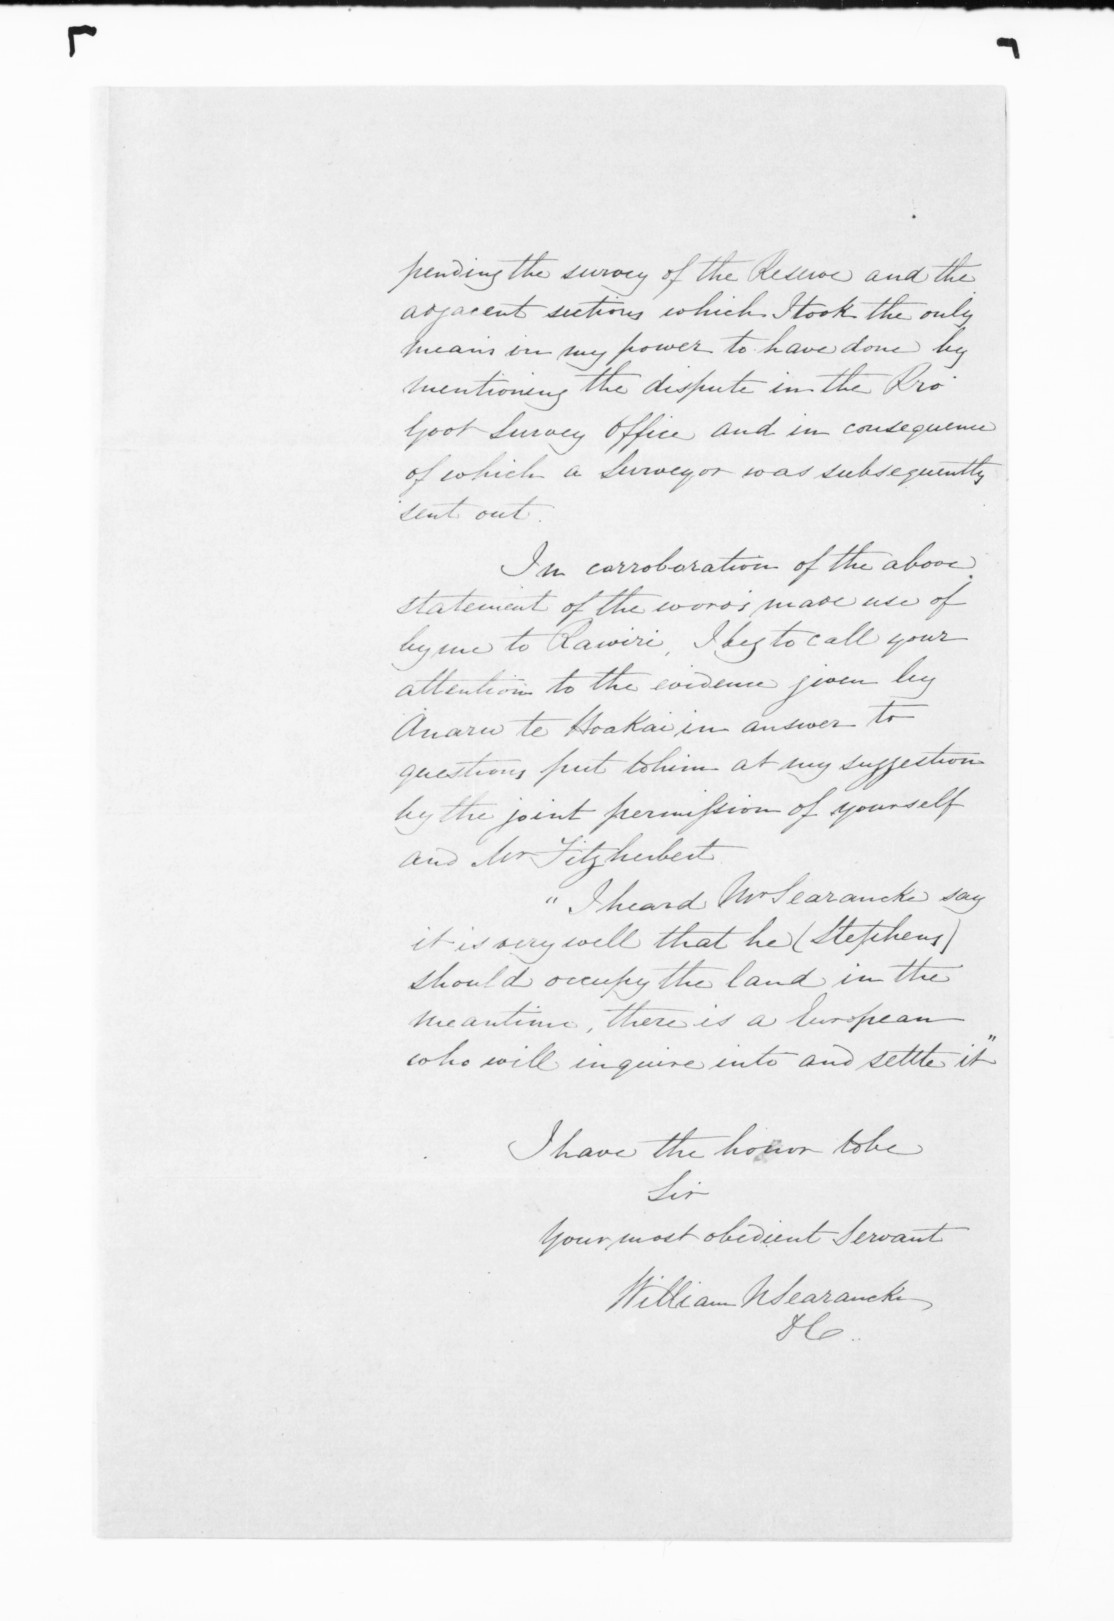 pending the survey of the Reserve and the
adjacent sections which I took the only
means in my power to have done by
mentioning the dispute in the Pro
Govt Survey Office and in consequence
of which a Surveyor was subsequently
sent out.
In corroboration of the above
statement of the words made use of
by me to Rawiri, I beg to call your
attention to the evidence given by
Anaru te Hoakai in answer to
questions put to him at my suggestion
by the joint permission of yourself
and Mr Fitzherbert
"I heard Mr Searancke say
it is very well that he (Stephens)
should occupy the land in the
meantime, there is a European
who will inquire into and settle it"
I have the honor to be
Sir
Your most obedient Servant
William N Searancke
DC..